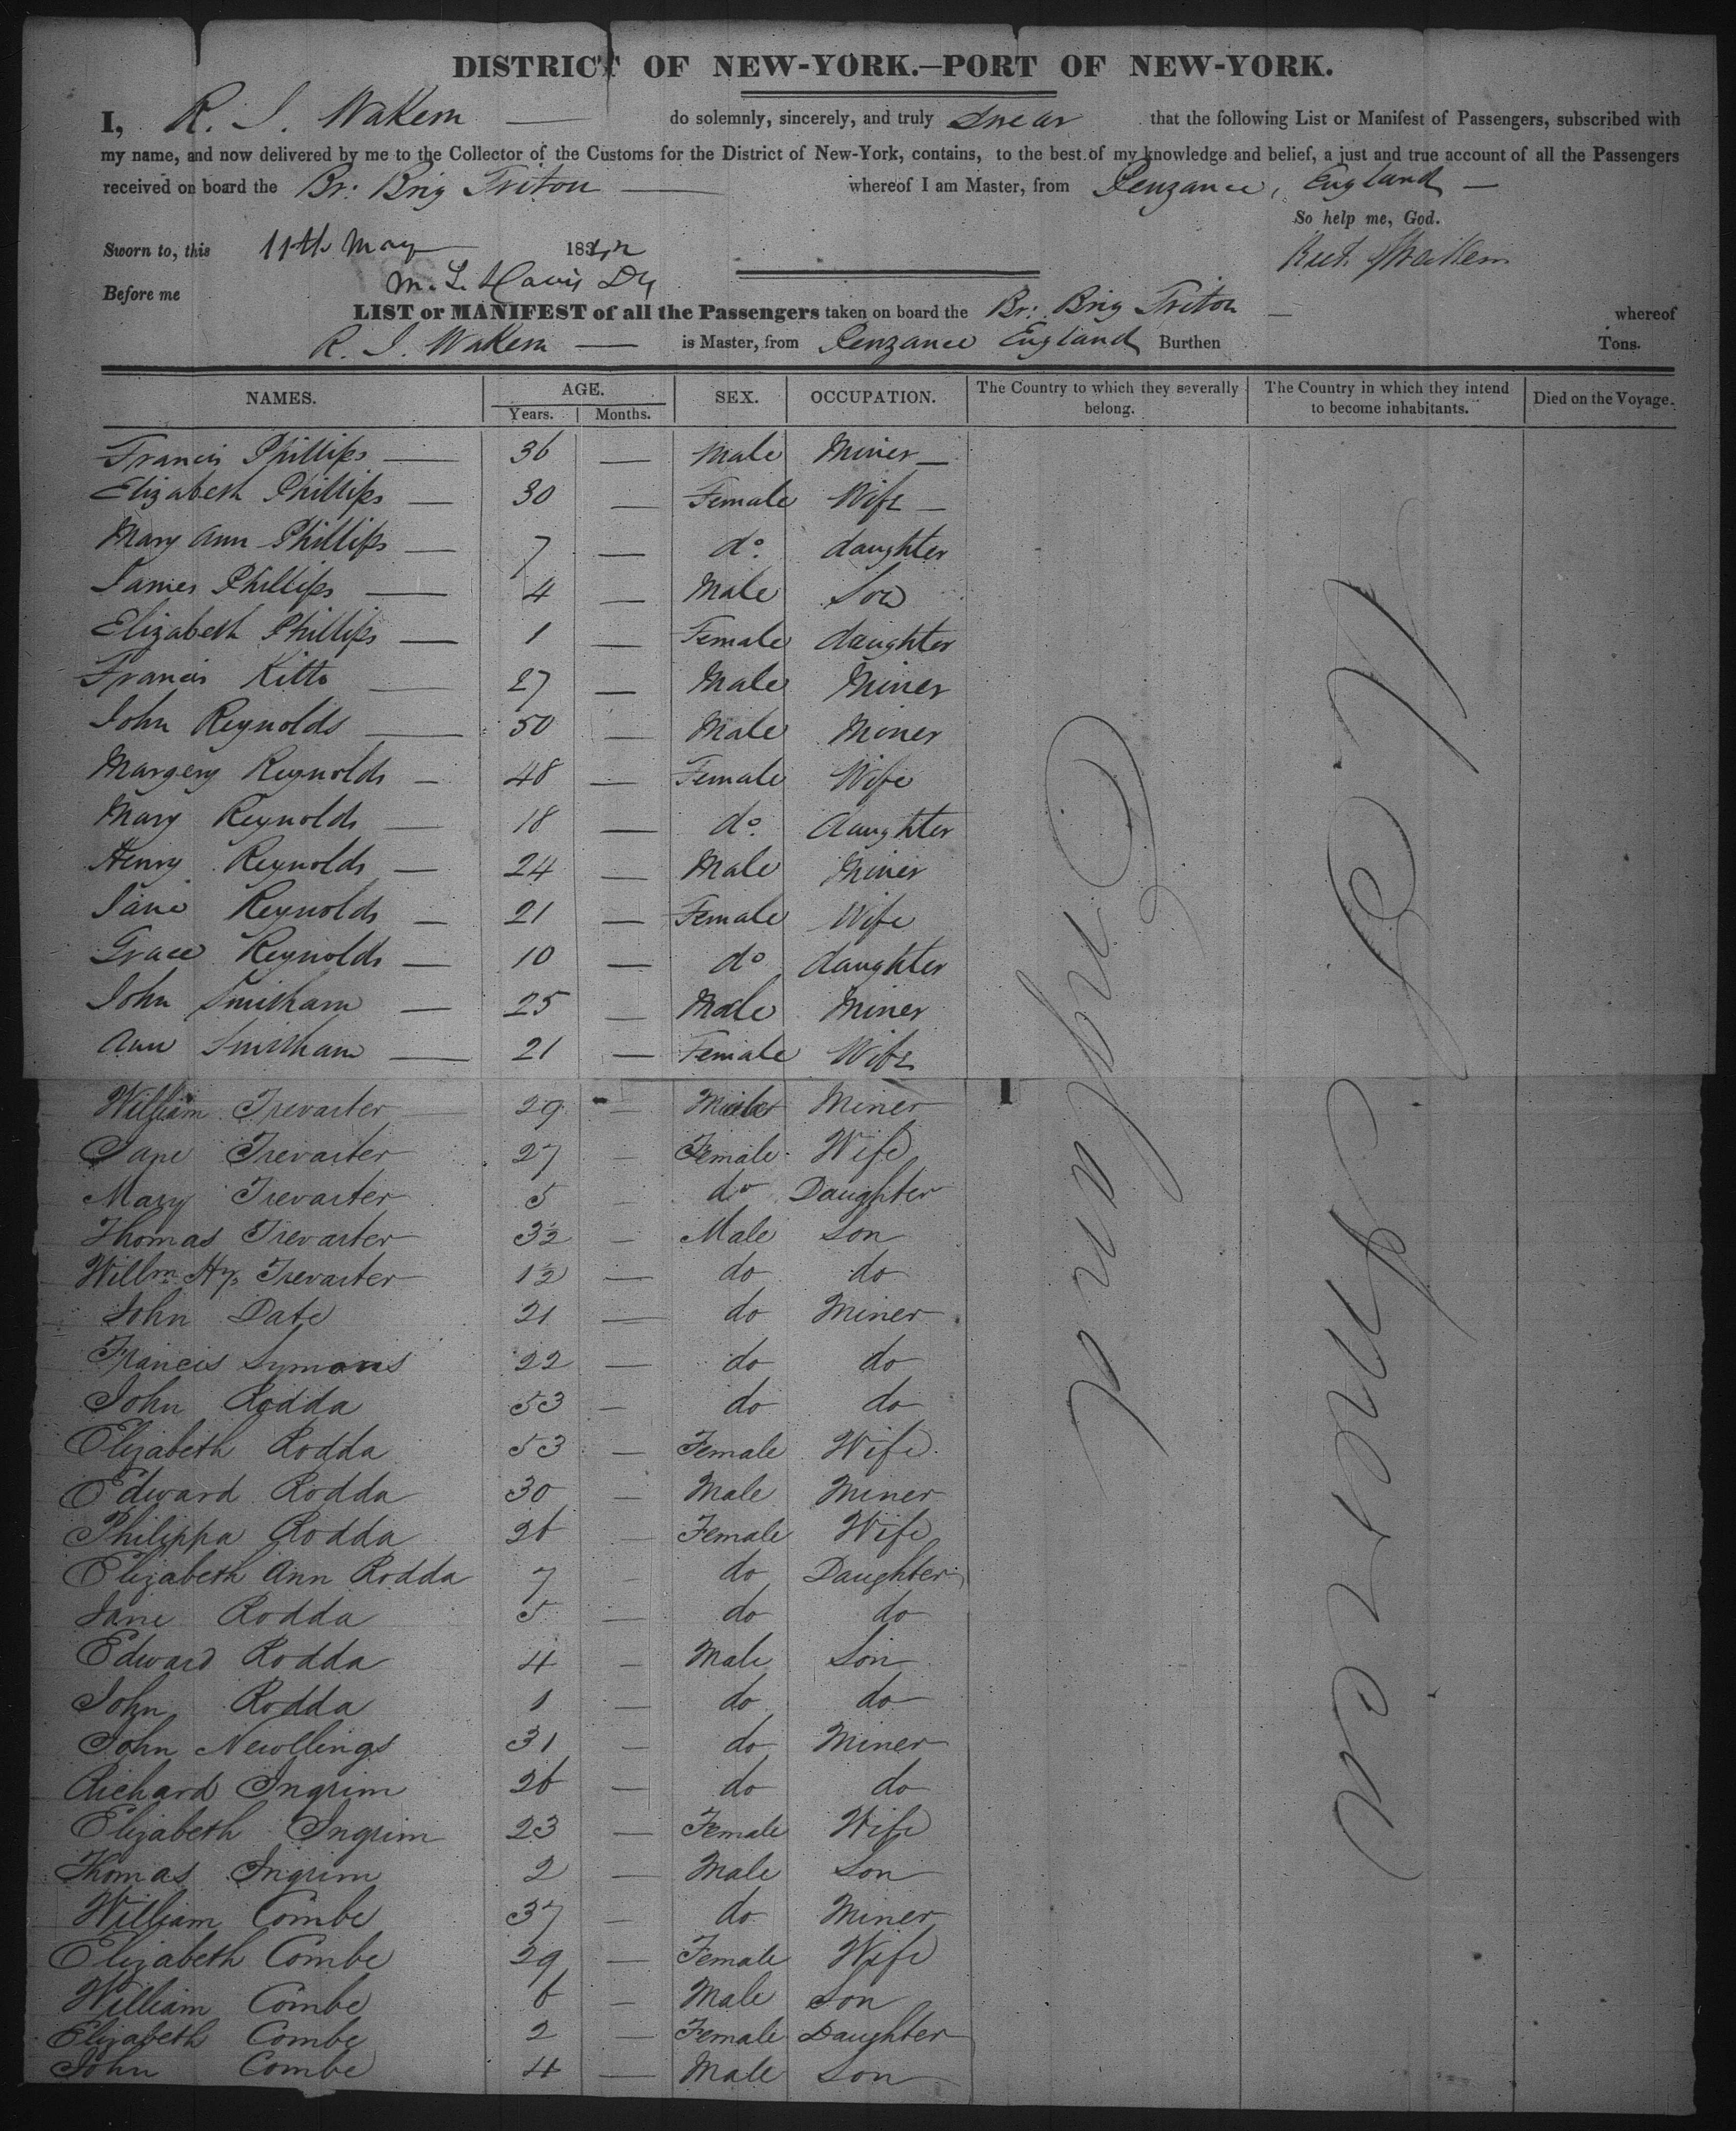 DISTRICT OF NEW-YORK.—PORT OF NEW-YORK.
I, R. J. Wakem — do solemnly, sincerely, and truly Swear that the following List or Manifest of Passengers, subscribed with
my name, and now delivered by me to the Collector of the Customs for the District of New-York, contains, to the best of my knowledge and belief, a just and true account of all the Passengers
received on board the Br: Brig Triton — whereof I am Master, from Penzance, England —
So help me, God.
Sworn to, this 11th May 184
Before me M. L. Davis
LIST or MANIFEST of all the Passengers taken on board the Br: Brig Triton — whereof
R. J. Wakem — is Master, from Penzance England Burthen Tons.
NAMES. AGE. SEX. OCCUPATION. The Country to which they severally belong. The Country in which they intend to become inhabitants. Died on the Voyage.
Years. Months.
Francis Phillips — 36 — Male Miner —
Elizabeth Phillips — 30 — Female Wife —
Mary Ann Phillips — 7 — do. daughter
James Phillips — 4 — Male Son
Elizabeth Phillips — 1 — Female daughter
Francis Kitto — 27 — Male Miner
John Reynolds — 50 — Male Miner
Margery Reynolds — 48 — Female Wife
Mary Reynolds — 18 — do. daughter
Henry Reynolds — 24 — Male Miner
Jane Reynolds — 21 — Female Wife
Grace Reynolds — 10 — do daughter
John Smitham — 25 — Male Miner
Ann Smitham — 21 — Female Wife
William Trevarter 29 — Male Miner
Jane Trevarter 27 — Female Wife
Mary Trevarter 5 — do Daughter
Thomas Trevarter 3½ — Male Son
Willm Hy Trevarter 1½ — do do
John Date 21 — do Miner
Francis Symons 22 — do do
John Rodda 53 — do do
Elizabeth Rodda 53 — Female Wife
Edward Rodda 30 — Male Miner
Philippa Rodda 26 — Female Wife
Elizabeth Ann Rodda 7 — do Daughter
Jane Rodda 5 — do do
Edward Rodda 4 — Male Son
John Rodda 1 — do do
John Newllings 31 — do Miner
Richard Ingrim 26 — do do
Elizabeth Ingrim 23 — Female Wife
Thomas Ingrim 2 — Male Son
William Combe 37 — do Miner
Elizabeth Combe 29 — Female Wife
William Combe 6 — Male Son
Elizabeth Combe 2 — Female Daughter
John Combe 4 — Male Son
England
America